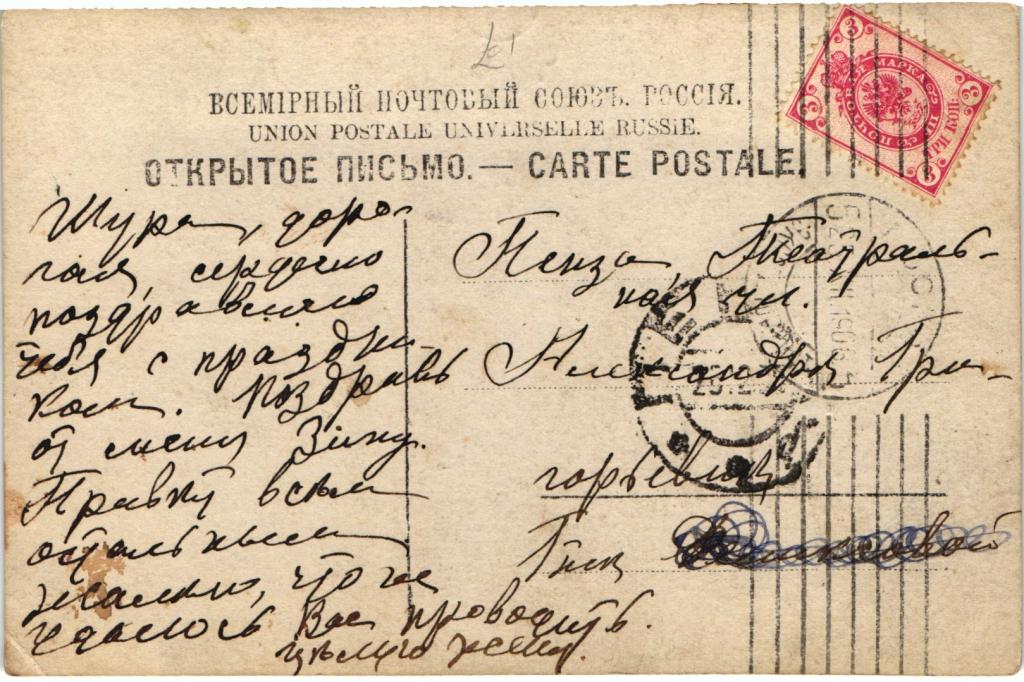 ВСЕМІРНЫЙ ПОЧТОВЫЙ СОЮЗЪ. РОССІЯ.
UNION POSTALE UNIVERSELLE RUSSIE.
ОТКРЫТОЕ ПИСЬМО. — CARTE POSTALE.
3 3
3 3
ПОЧТОВАЯ МАРКА
ТРИ КОП.
Шура, доро-
гая, сердечно
поздравляю
тебя с праздни-
ком. Поздравь
от меня Зину.
Привѣт всѣм
остальным
жалею, что не
удалось Вас проводить.
Пенза, Театраль-
ная ул.
Александрѣ Гри-
горьевнѣ